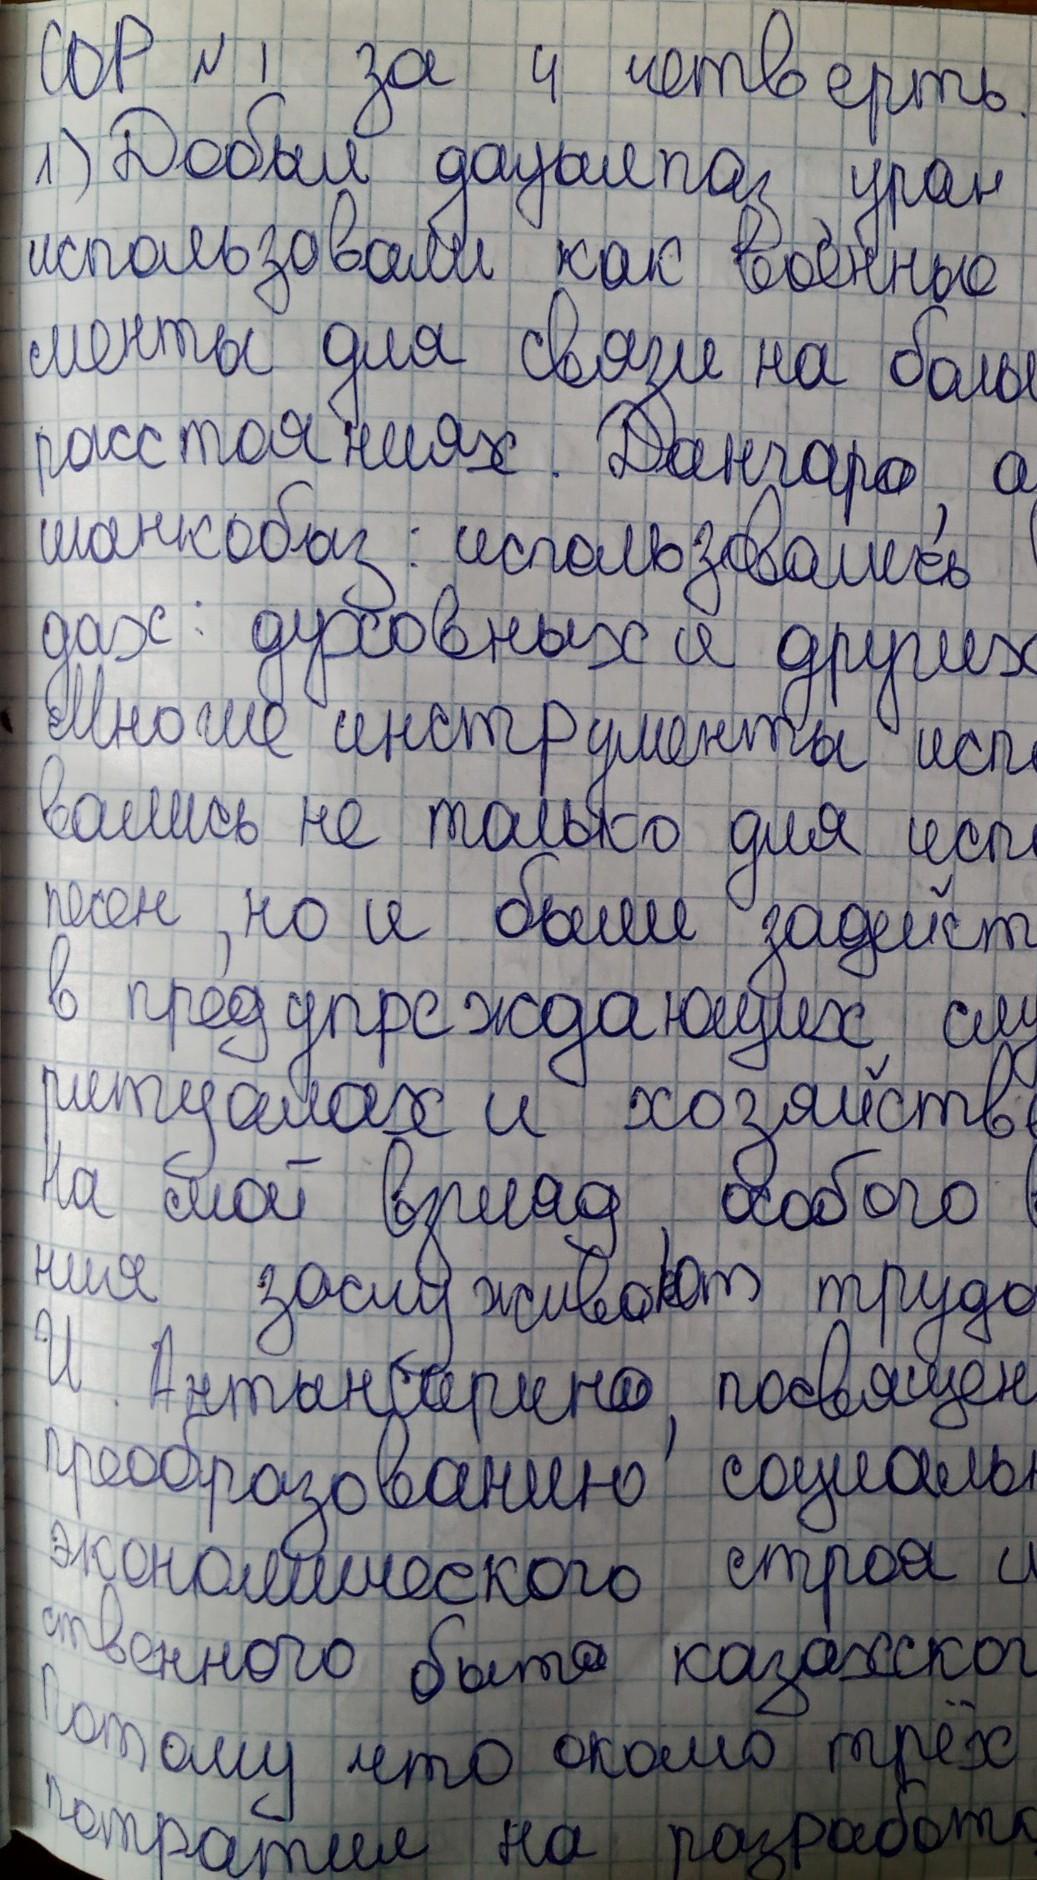 СОР №1 за 4 четверть.
1) Добыл дауылпаз уран
использовали как военные
менты для связи на боль
расстояниях. Дангара, а
шанкобыз: использовались
дах: духовных и других
Многие инструменты испо
вались не только для исп
песен, но и были задейст
в предупреждающих, слу
ритуалах и хозяйстве
На мой взгляд, особого в
ния заслуживают труда
И. Алтынсарина, посвящен
преобразованию социальн
экономического строя и
ственного быта казахског
Потому что около трёх
потратил на разработк